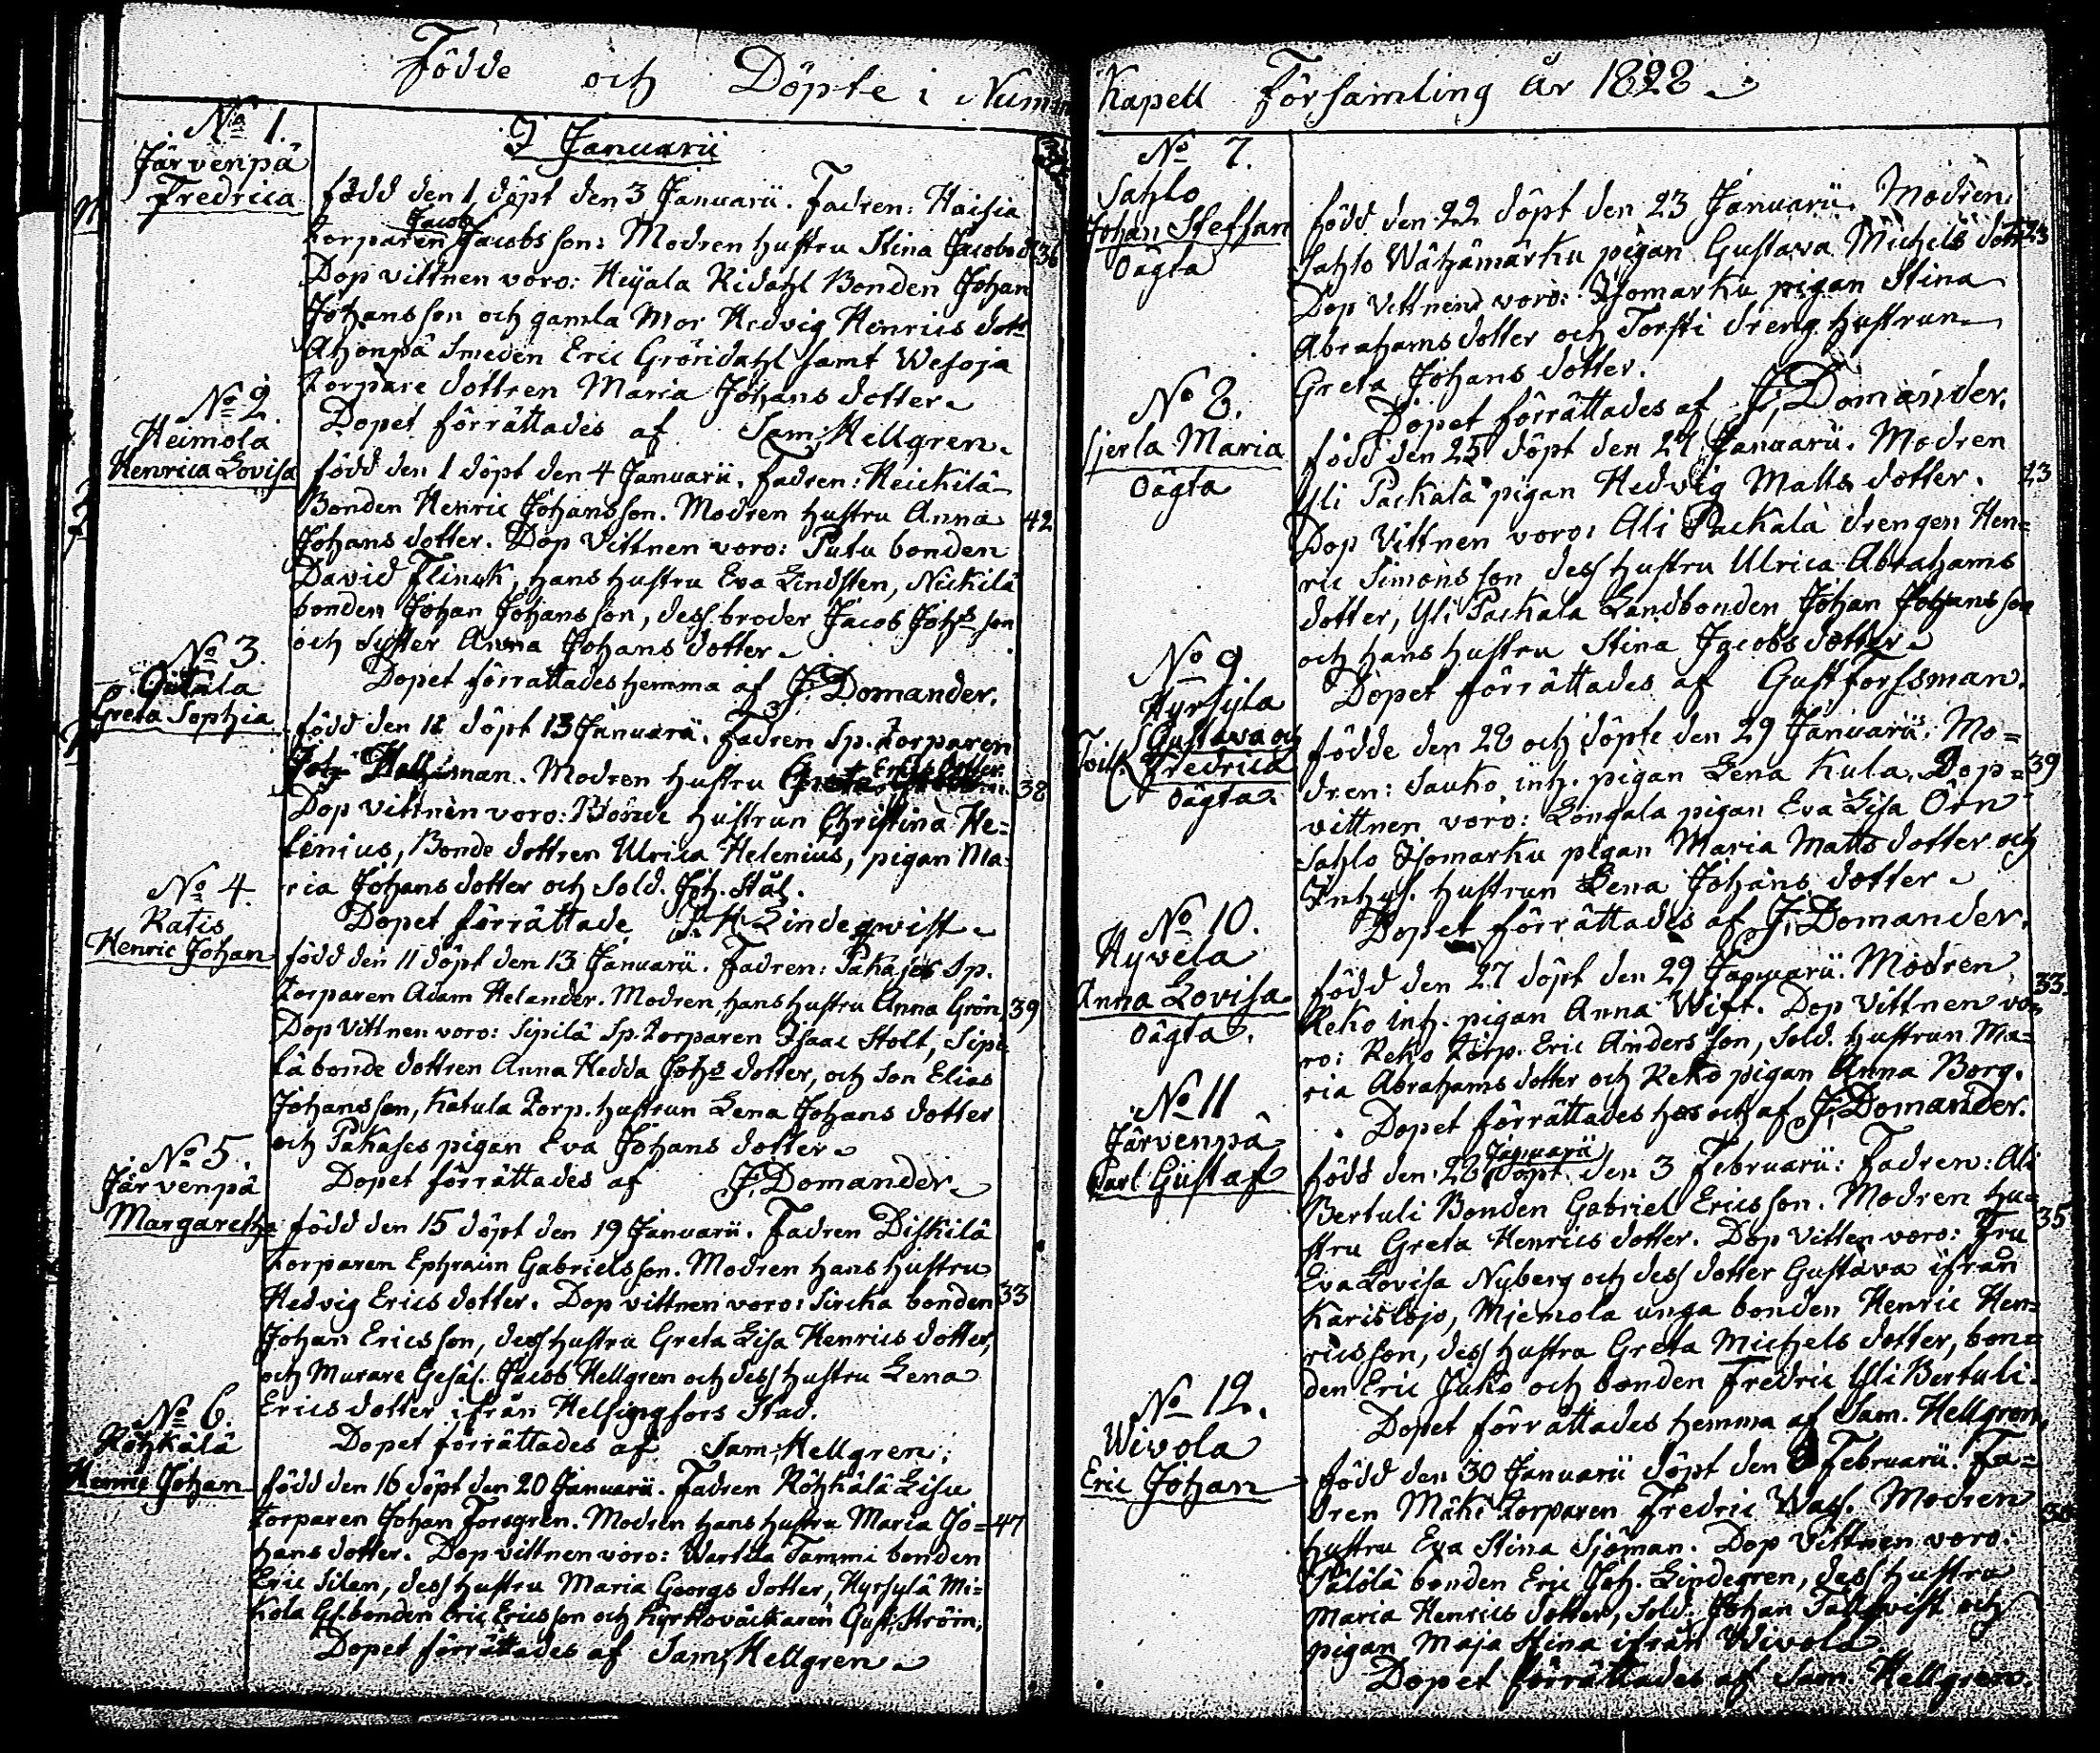 Födde och Döpte i Numm
Kapell Församling år 1828
No 1.
Järvenpä
Fredrica
I Januarii
född den 1, döpt den 3 Januarii. Fadren: Haisia
Torparen Jacob Jacobsson: Modren hustru Stina Jacobsd 36
Dop vittnen voro: Heijala Ridahl Bonden Johan
Johansson och gamla Mor Hedvig Henrics dotr
Ahonpä Smeden Eric Gröndahl samt Wesoja
Torpare dottren Maria Johans dotter
Dopet förrättades af Sam: Hellgren.
No 2.
Heimola
Henrica Lovisa
född den 1 döpt den 4 Januarii. fadren: Heickilä
Bonden Henric Johansson. Modren hustru Anna 42
Johans dotter. Dop Vittnen voro: Putu bonden
David Flinck, hans hustru Eva Lindsten, Nickilä
bonden Johan Johansson, dess broder Jacob Johs son
och syster Anna Johans dotter
Dopet förrättades hemma af J. Domander.
No 3.
Greta Sophia
född den 12 döpt 13 Januarii. Fadren Sp. Torparen
Joh. man. Modren hustru Erics dotter 38
Dop vittnen voro: Bonde hustrun Christina He=
lenius, Bonde dottren Ulrica Helenius, pigan Ma=
ria Johans dotter och Sold. Joh. Stål.
Dopet förrättade J. H. Lindeqwist
No 4.
Ratis
Henric Johan
född den 11 döpt den 13 Januarii. Fadren: Pakajes Sp.
Torparen Adam Helander. Modren hans hustru Anna Grön. 39
Dop Vittnen voro: Sipilä Sp. Torparen Isaac Stolt, Sipi=
lä bonde dottren Anna Hedda Johs dotter, och son Elias
Johansson, Katula Torp. hustrun Lena Johans dotter
och Pakases pigan Eva Johans dotter
Dopet förrättades af J. Domander
No 5.
Järvenpä
Margaretha
född den 15 döpt den 19 Januarii. Fadren Diskilä
Torparen Ephraim Gabrielsson. Modren hans hustru
Hedvig Erics dotter. Dop vittnen voro: Sircka bonden 33
Johan Ericsson, dess hustru Greta Lisa Henrics dotter,
och Murare Gesäl. Jacob Hellgren och dess hustru Lena
Erics dotter ifrån Helsingfors Stad.
Dopet förrättades af Sam: Hellgren.
No 6.
Röhkälä
Henric Johan
född den 16 döpt den 20 Januarii. Fadren Röhkälä Lisu
Torparen Johan Forsgren. Modren hans hustru Maria Jo= 47
hans dotter. Dop vittnen voro: Wartila Tammi bonden
Eric Silen, dess hustru Maria Georgs dotter, Hyrsylä Mi=
kola Gl. bonden Eric Ericsson och Kyrkoväcktaren Gust. Ström.
Dopet förrättades af Sam: Hellgren
No 7.
Sahlo
Johan Steffan
Oägta
född den 22 döpt den 23 Januarii. Modren:
Sahlo Wähämärku pigan Gustava Michels dotr 23
Dop Vittnen voro: Isomarku pigan Stina
Abrahams dotter och Torsti dreng hustrun
Greta Johans dotter.
Dopet förrättades af J. Domander.
No 8.
Sjerla Maria
Oägta
född den 25 döpt den 27 Januarii. Modren
Yli Packala pigan Hedvig Matts dotter. 23
Dop Vittnen voro: Ali Packala drengen Hen=
ric Simonsson dess hustru Ulrica Abrahams
dotter, Yli Packala Landbonden Johan Johansson
och hans hustru Stina Jacobs dotter
Dopet förrättades af Gust Forssman.
No 9
Hyrsyla
Gustava och
Fredrica
Oägta.
födde den 28 och döpte den 29 Januarii. Mo=
dren: Sauko inh. pigan Lena Kula. Dop= 39
vittnen voro: Longala pigan Eva Lisa Örn
Sahlo Isomarku pigan Maria Matts dotter och
Inhys. hustrun Lena Johans dotter
Dopet förrättades af J. Domander.
No 10.
Hyvela
Anna Lovisa
Oägta.
född den 27 döpt den 29 Januarii. Modren 33.
Reko inh. pigan Anna Wift. Dop Vittnen vo=
ro: Reko Torp. Eric Andersson, Sold. hustrun Ma=
ria Abrahams dotter och Reko pigan Anna Borg.
Dopet förrättades hos och af J. Domander.
No 11
Järvenpä
Carl Gustaf
född den 26 Januarii döpt den 3 Februarii: Fadren: Ali
Bertuli Bonden Gabriel Ericsson. Modren hu= 35
stru Greta Henrics dotter. Dop Vitten voro: Fru
Eva Lovisa Nyberg och dess dotter Gustava ifrån
Karislojo, Miemola unga bonden Henric Hen=
ricsson, dess hustru Greta Michels dotter, bon=
den Eric Juko och bonden Fredric Yli Bertuli.
Dopet förrättades hemma af Sam. Hellgren.
No 12.
Wivola
Eric Johan
född den 30 Januarii döpt den 3 Februarii. Fa=
dren Mäki Torparen Fredric Wass. Modren
hustru Eva Stina Sjöman. Dop Vittnen voro:
Pälölä bonden Eric Joh. Lindegren, dess hustru
Maria Henrics dotter, Sold. Johan Tallqvist och
pigan Maja Stina ifrån Wivola
Dopet förrättades af Sam. Hellgren.